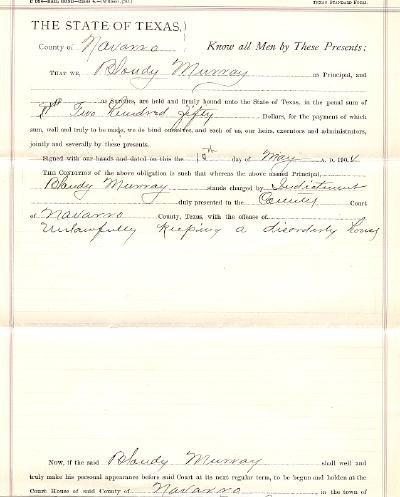 TEXAS STANDARD FORM.
THE STATE OF TEXAS,
County of Navarro Know all Men by These Presents:
THAT WE, Blandy Murray as Principal, and
as Sureties, are held and firmly bound unto the State of Texas, in the penal sum of
Two Hundred fifty Dollars, for the payment of which
sum, well and truly to be made, we do bind ourselves, and each of us, our heirs, executors and administrators,
jointly and severally by these presents.
Signed with our hands and dated on this the day of May A. D. 1904
THE CONDITION of the above obligation is such that whereas the above named Principal,
Blandy Murray stands charged by Indictment
duly presented in the County Court
of Navarro County, Texas, with the offense of
Unlawfully keeping a disorderly house
Now, if the said Blandy Murray shall well and
truly make his personal appearance before said Court at its next regular term, to be begun and holden at the
Court House of said County of Navarro in the town of